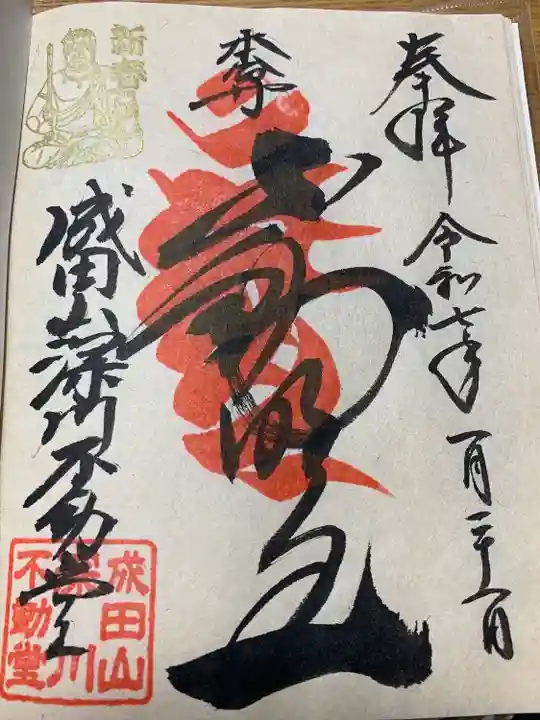 奉拝 令和七年 一月二十一日
本尊
不動明王
新春
成田山深川不動堂
成田山
深川
不動堂